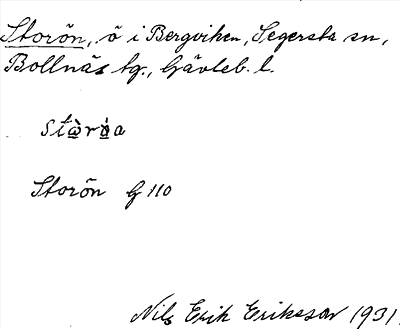 Storön, ö i Bergviken, Segersta sn,
Bollnäs tg., Gävleb. l.
Storön G 110
Nils Erik Eriksson 1931.